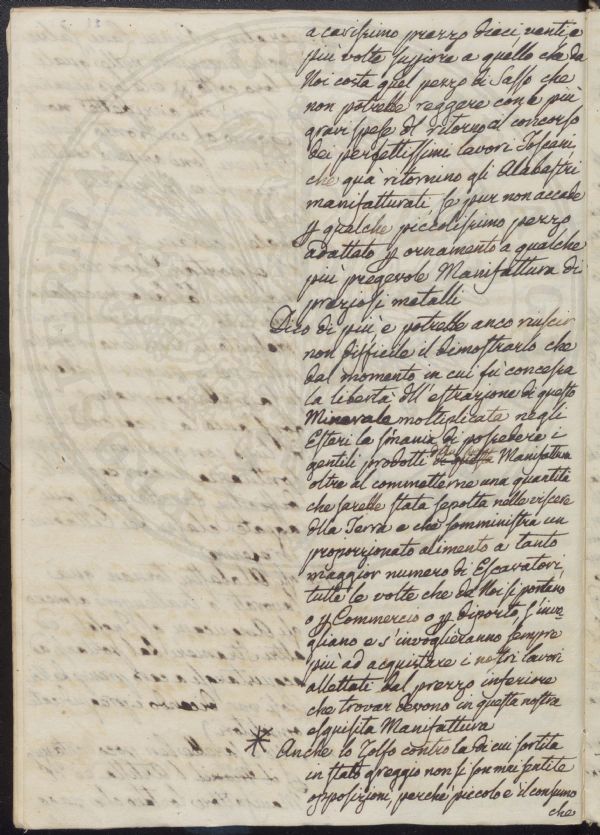 a carissimo prezzo dieci venti e
più volte supiore a quello che da
Noi costa quel pezzo di Sasso che
non potrebbe reggere con le più
gravi spese dl ritorno al concorso
dei perfettissimi lavori Toscani
che quà ritornino gli Alabastri
manifatturati se pur non accade
p qualche piccolissimo pezzo
adattato p ornamento a qualche
più pregevole Manifattura di
preziosi metalli
Dico di più e potrebbe anco riuscir
non difficile il dimostrarlo che
dal momento in cui fù concessa
la libertà dll'estrazione di questo
Minerale moltiplicata negli
Esteri la smania di possedere i
gentili prodotti di questa Manifattura
oltre al commetterne una quantità
che sarebbe stata sepolta nelle viscere
dlla Terra e che somministra un
proporzionato alimento a tanto
maggior numero di Escavatori,
tutte le volte che da Noi si portano
o p Commercio o p diporto, s'invo,
gliano e s'invoglieranno sempre
più ad acquistare i nostri lavori
allettati dal prezzo inferiore
che trovar devono in questa nostra
esquisita Manifattura
* Anche lo Zolfo contro la di cui sortita
in stato greggio non si son mai sentite
opposizioni, perche piccolo è il consumo
che